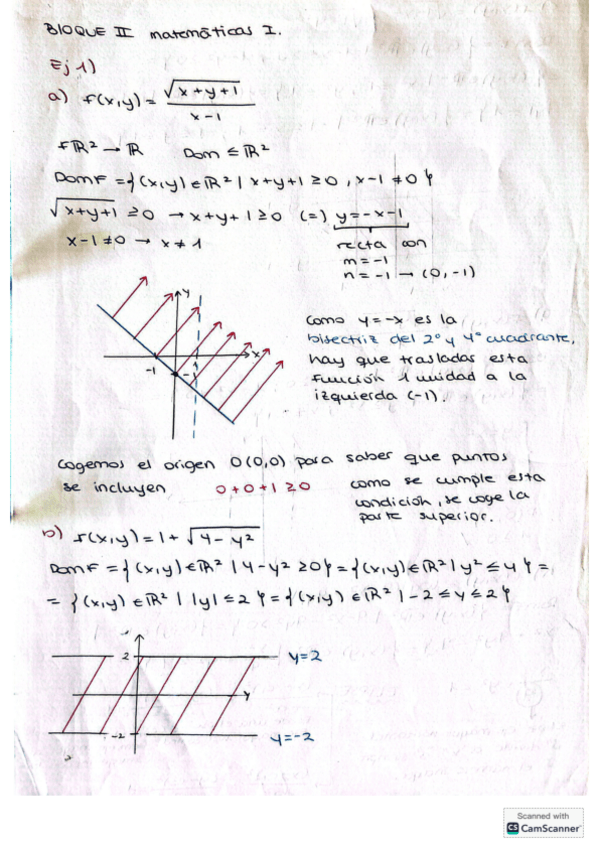 BLOQUE II matemáticas I.
Ej 1)
a) f(x,y) = √x+y+1 / x-1
fR² → R Dom ≤ R²
Dom F = {(x,y) ∈ R² / x+y+1 ≥ 0, x-1 ≠ 0}
√x+y+1 ≥ 0 → x+y+1 ≥ 0 (=) y=-x-1
x-1 ≠ 0 → x ≠ 1
recta con
m = -1
n = -1 → (0,-1)
y
x
-1
-1
como y=-x es la
bisectriz del 2º y 4º cuadrante,
hay que trasladas esta
función 1 unidad a la
izquierda (-1).
cogemos el origen O(0,0) para saber que puntos
se incluyen 0+0+1 ≥ 0
como se cumple esta
condición, se coge la
parte superior.
b) f(x,y) = 1 + √4-y²
Dom F = {(x,y) ∈ R² / 4-y² ≥ 0} = {(x,y) ∈ R² / y² ≤ 4} =
= {(x,y) ∈ R² / |y| ≤ 2} = {(x,y) ∈ R² / -2 ≤ y ≤ 2}
2
y=2
y
-2
y=-2
Scanned with
CS CamScanner